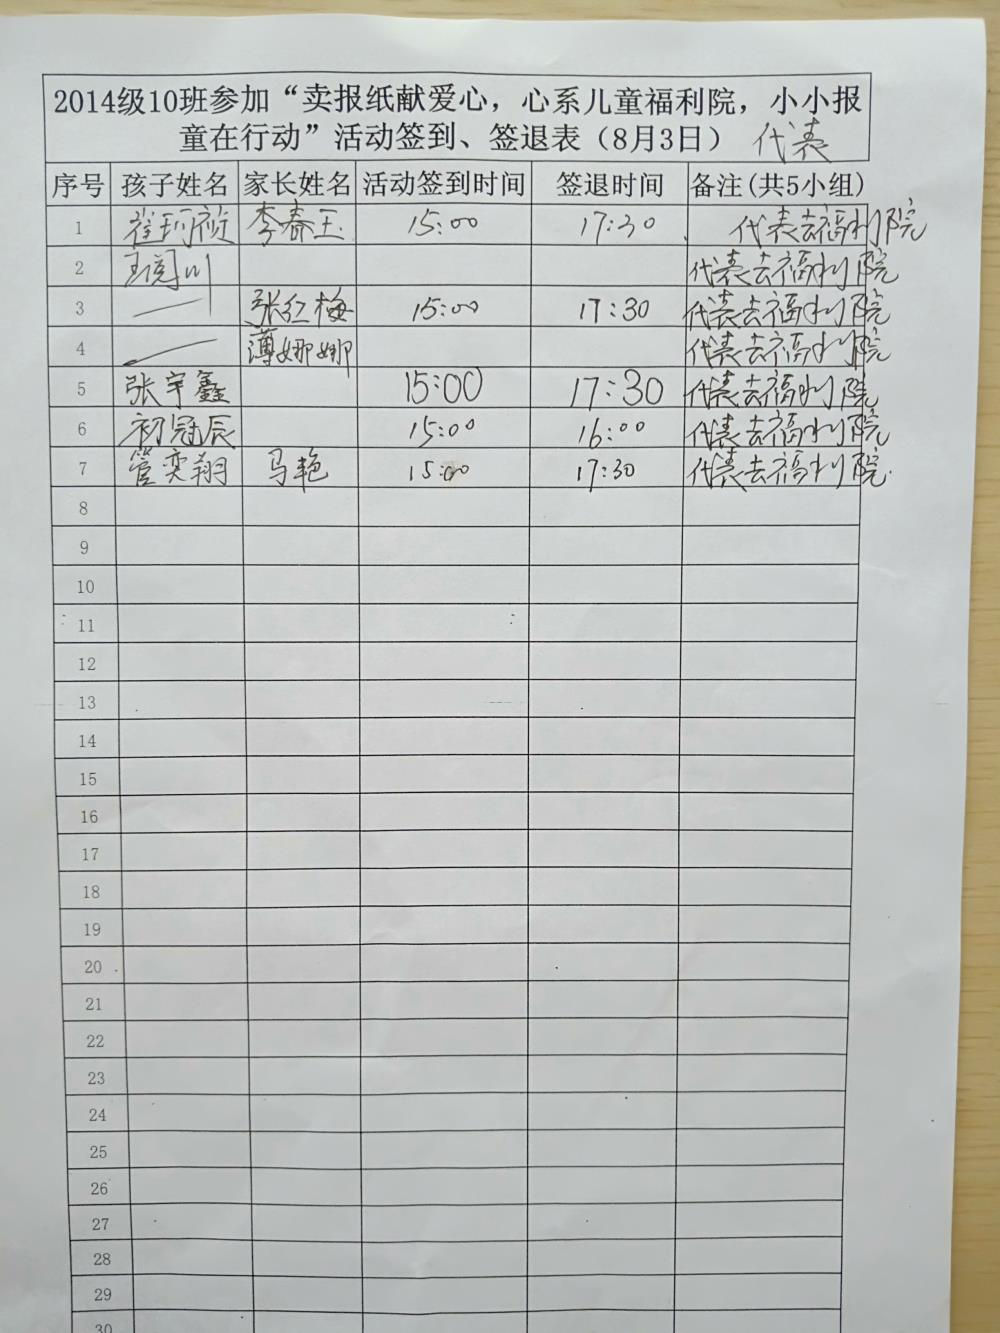 2014级10班参加“卖报纸献爱心，心系儿童福利院，小小报
童在行动”活动签到、签退表（8月3日） 代表
序号 孩子姓名 家长姓名 活动签到时间 签退时间 备注(共5小组)
1 崔珂祯 李春玉 15:00 17:30 代表去福利院
2 川 代表去福利院
3 — 张红梅 15:00 17:30 代表去福利院
4 — 薄娜娜 代表去福利院
5 张宇鑫 15:00 17:30 代表去福利院
6 初冠辰 15:00 16:00 代表去福利院
7 管奕翔 马艳 15:00 17:30 代表去福利院
8
9
10
11
12
13
14
15
16
17
18
19
20
21
22
23
24
25
26
27
28
29
30